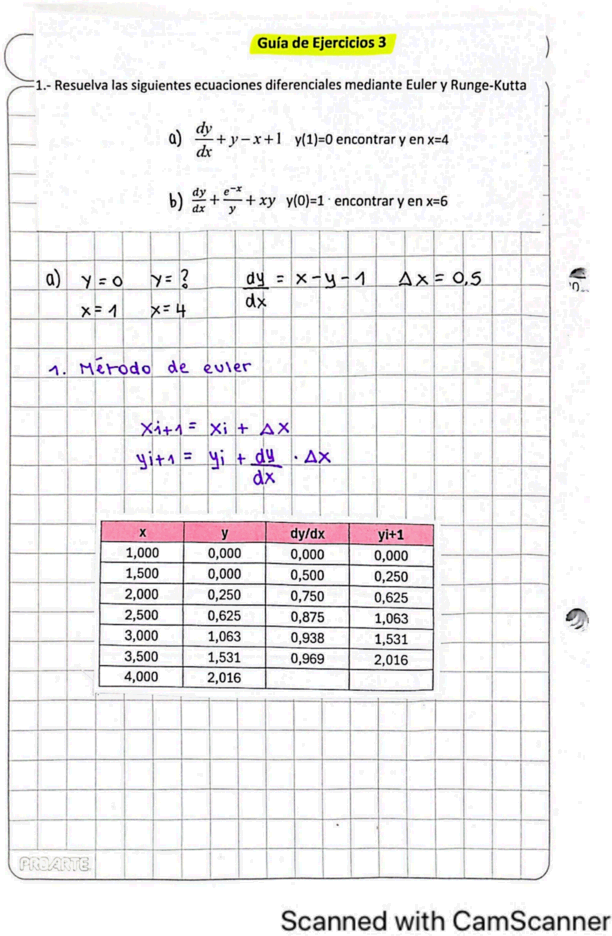 Guía de Ejercicios 3
1.- Resuelva las siguientes ecuaciones diferenciales mediante Euler y Runge-Kutta
a) dy/dx + y − x + 1 y(1)=0 encontrar y en x=4
b) dy/dx + e^-x/y + xy y(0)=1 encontrar y en x=6
a) y = 0 y = ? dy/dx = x - y - 1 Δx = 0,5
x = 1 x = 4
1. Método de euler
xi+1 = xi + Δx
yi+1 = yi + dy/dx · Δx
x y dy/dx yi+1
1,000 0,000 0,000 0,000
1,500 0,000 0,500 0,250
2,000 0,250 0,750 0,625
2,500 0,625 0,875 1,063
3,000 1,063 0,938 1,531
3,500 1,531 0,969 2,016
4,000 2,016
PROARTE
Scanned with CamScanner